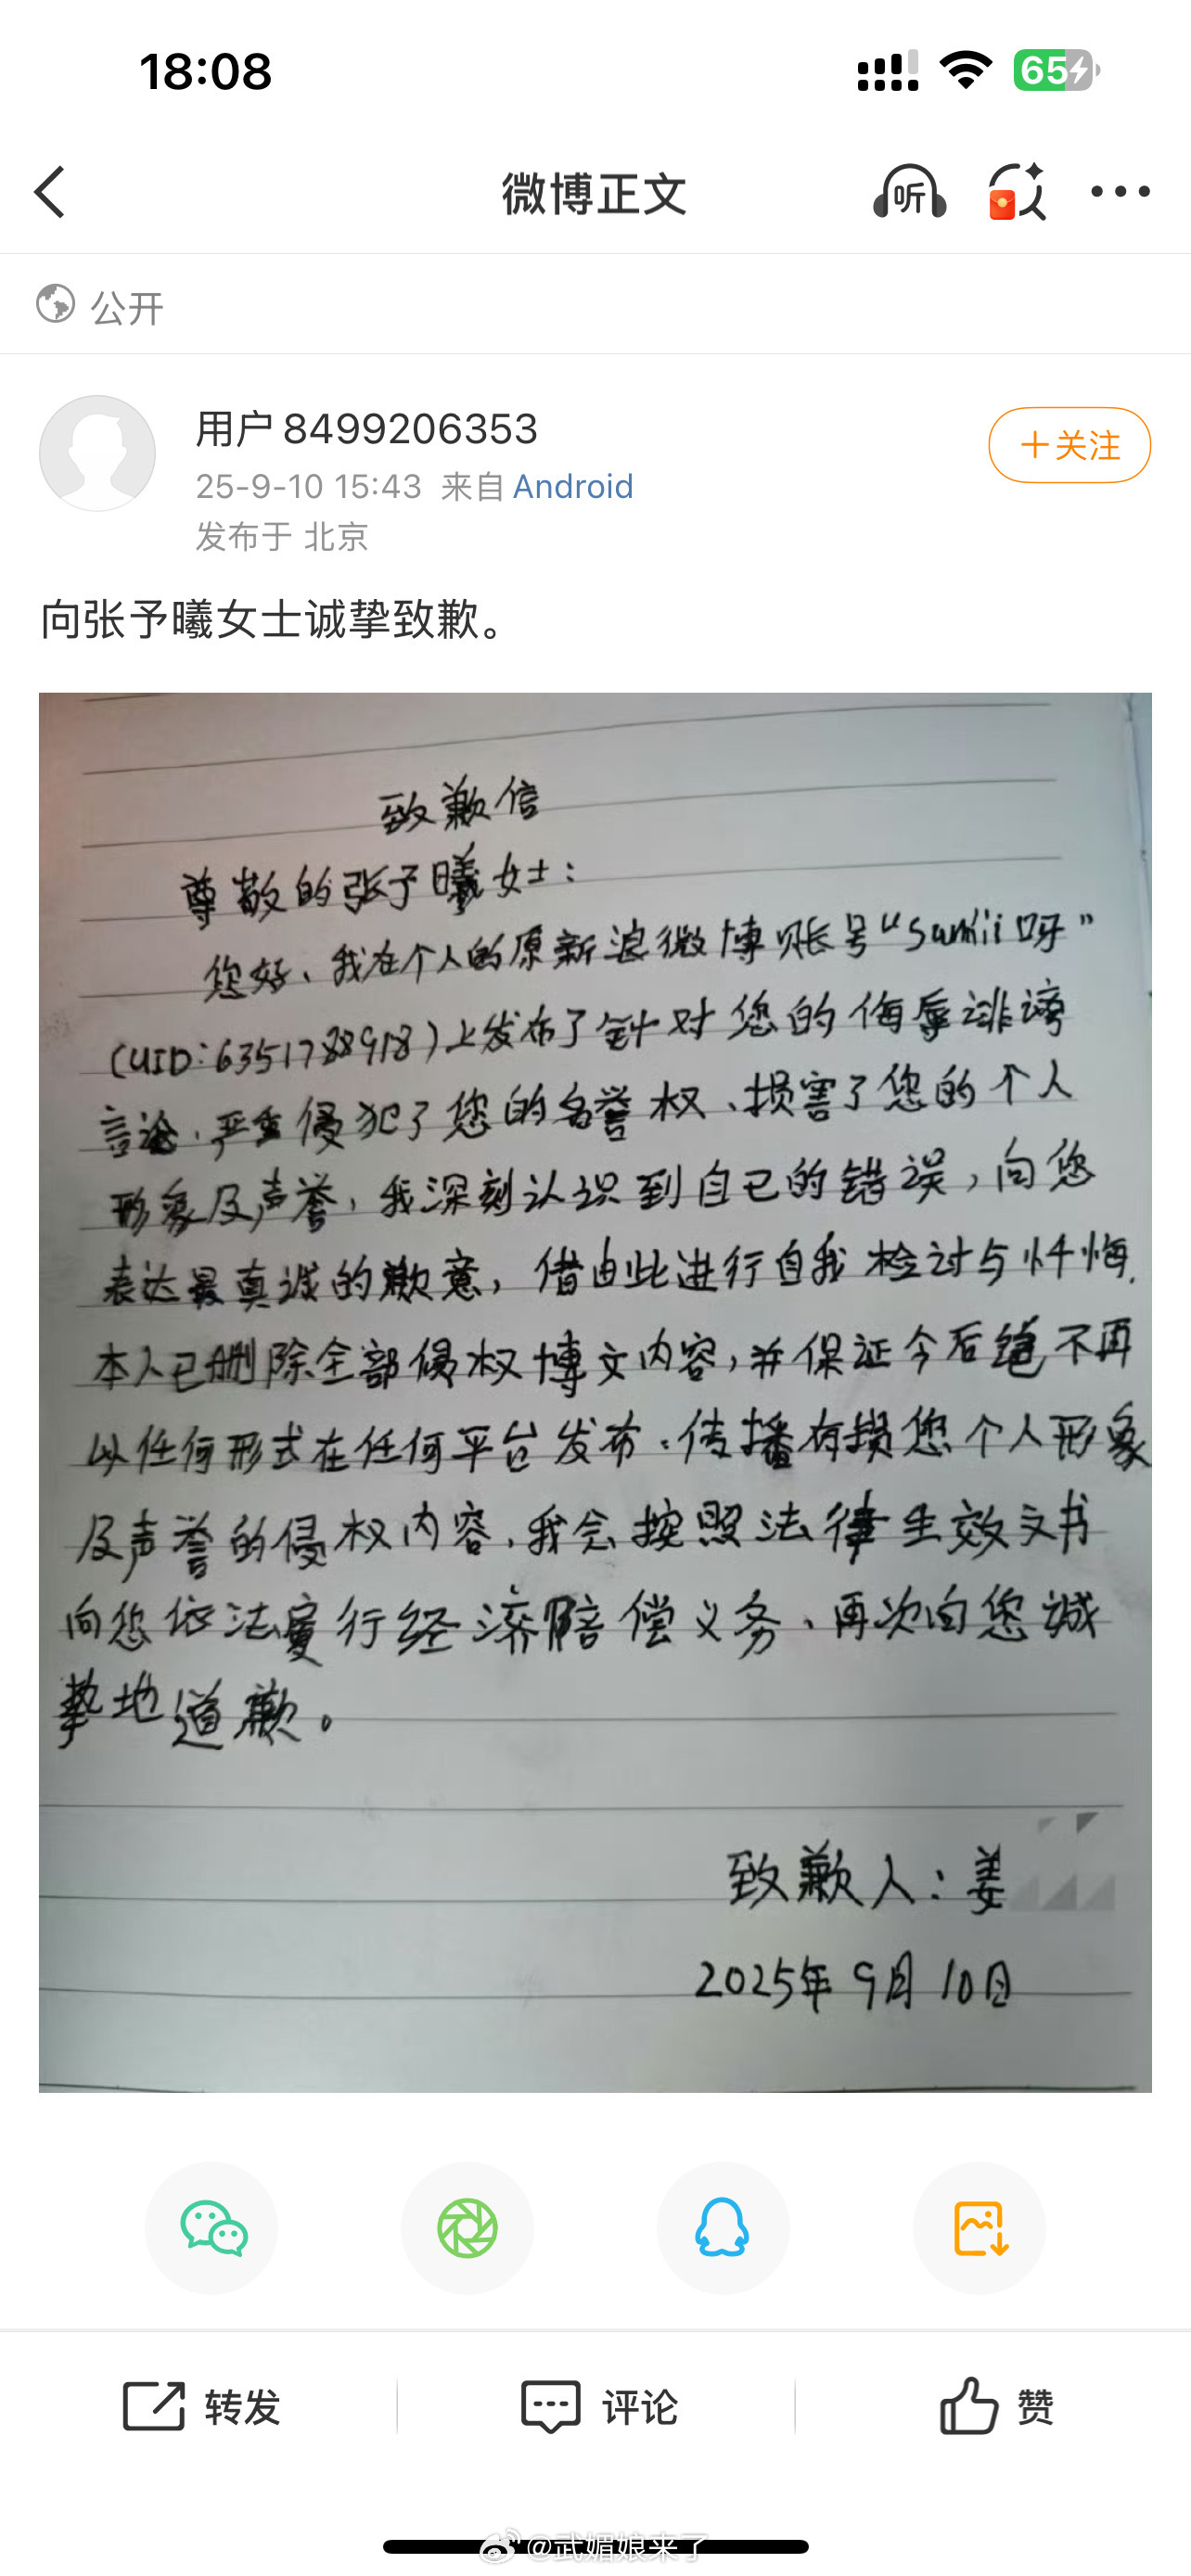 18:08
65
微博正文
听
公开
用户8499206353
+关注
25-9-10 15:43 来自 Android
发布于 北京
向张予曦女士诚挚致歉。
致歉信
尊敬的张予曦女士：
您好、我在个人的原新浪微博账号“Sumii呀”
(UID:6351788918)上发布了针对您的侮辱诽谤
言论,严重侵犯了您的名誉权、损害了您的个人
形象及声誉,我深刻认识到自己的错误,向您
表达最真诚的歉意,借由此进行自我检讨与忏悔,
本人已删除全部侵权博文内容,并保证今后绝不再
以任何形式在任何平台发布、传播有损您个人形象
及声誉的侵权内容,我会按照法律生效文书
向您依法履行经济赔偿义务、再次向您诚
挚地道歉。
致歉人：姜
2025年9月10日
转发
评论
赞
@武媚娘来了